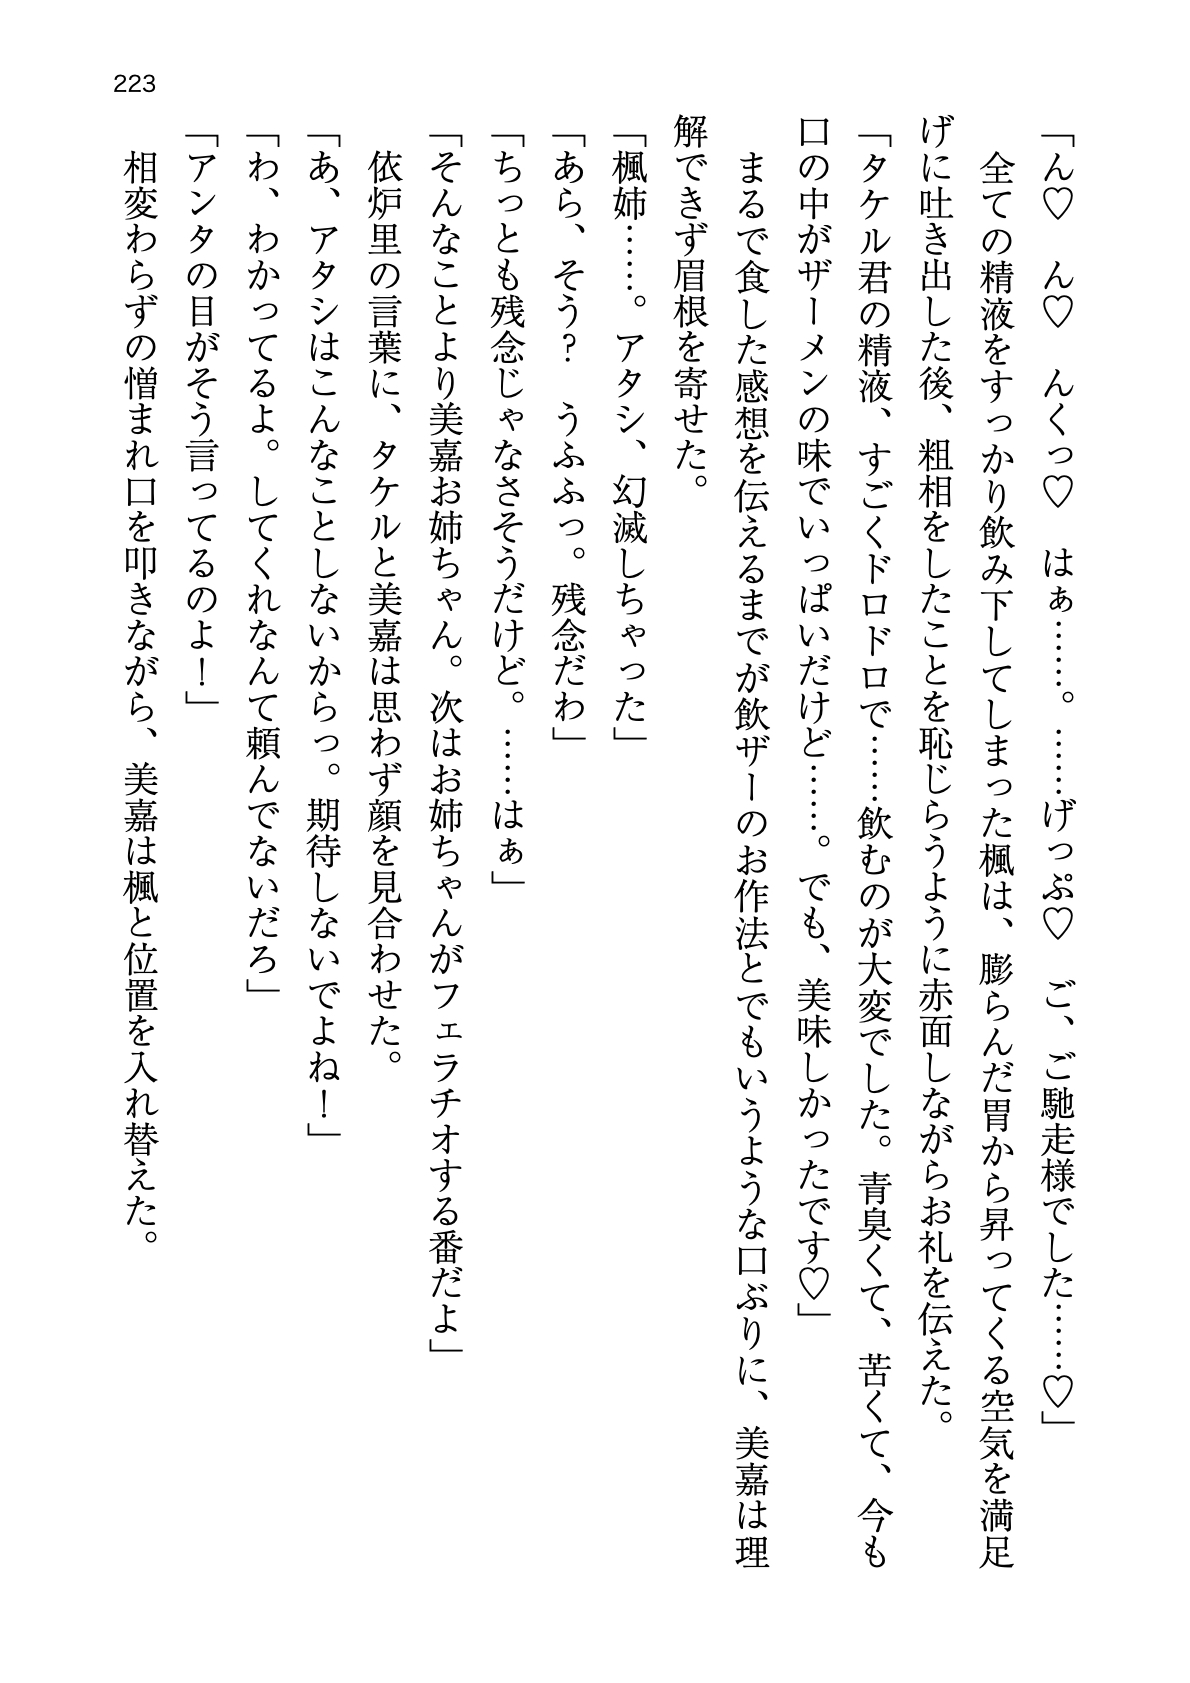 223
「ん♡　ん♡　んくっ♡　はぁ……。……げっぷ♡　ご、ご馳走様でした……♡」
　全ての精液をすっかり飲み下してしまった楓は、膨らんだ胃から昇ってくる空気を満足
げに吐き出した後、粗相をしたことを恥じらうように赤面しながらお礼を伝えた。
「タケル君の精液、すごくドロドロで……飲むのが大変でした。青臭くて、苦くて、今も
口の中がザーメンの味でいっぱいだけど……。でも、美味しかったです♡」
　まるで食した感想を伝えるまでが飲ザーのお作法とでもいうような口ぶりに、美嘉は理
解できず眉根を寄せた。
「楓姉……。アタシ、幻滅しちゃった」
「あら、そう？　うふふっ。残念だわ」
「ちっとも残念じゃなさそうだけど。……はぁ」
「そんなことより美嘉お姉ちゃん。次はお姉ちゃんがフェラチオする番だよ」
　依炉里の言葉に、タケルと美嘉は思わず顔を見合わせた。
「あ、アタシはこんなことしないからっ。期待しないでよね！」
「わ、わかってるよ。してくれなんて頼んでないだろ」
「アンタの目がそう言ってるのよ！」
　相変わらずの憎まれ口を叩きながら、美嘉は楓と位置を入れ替えた。